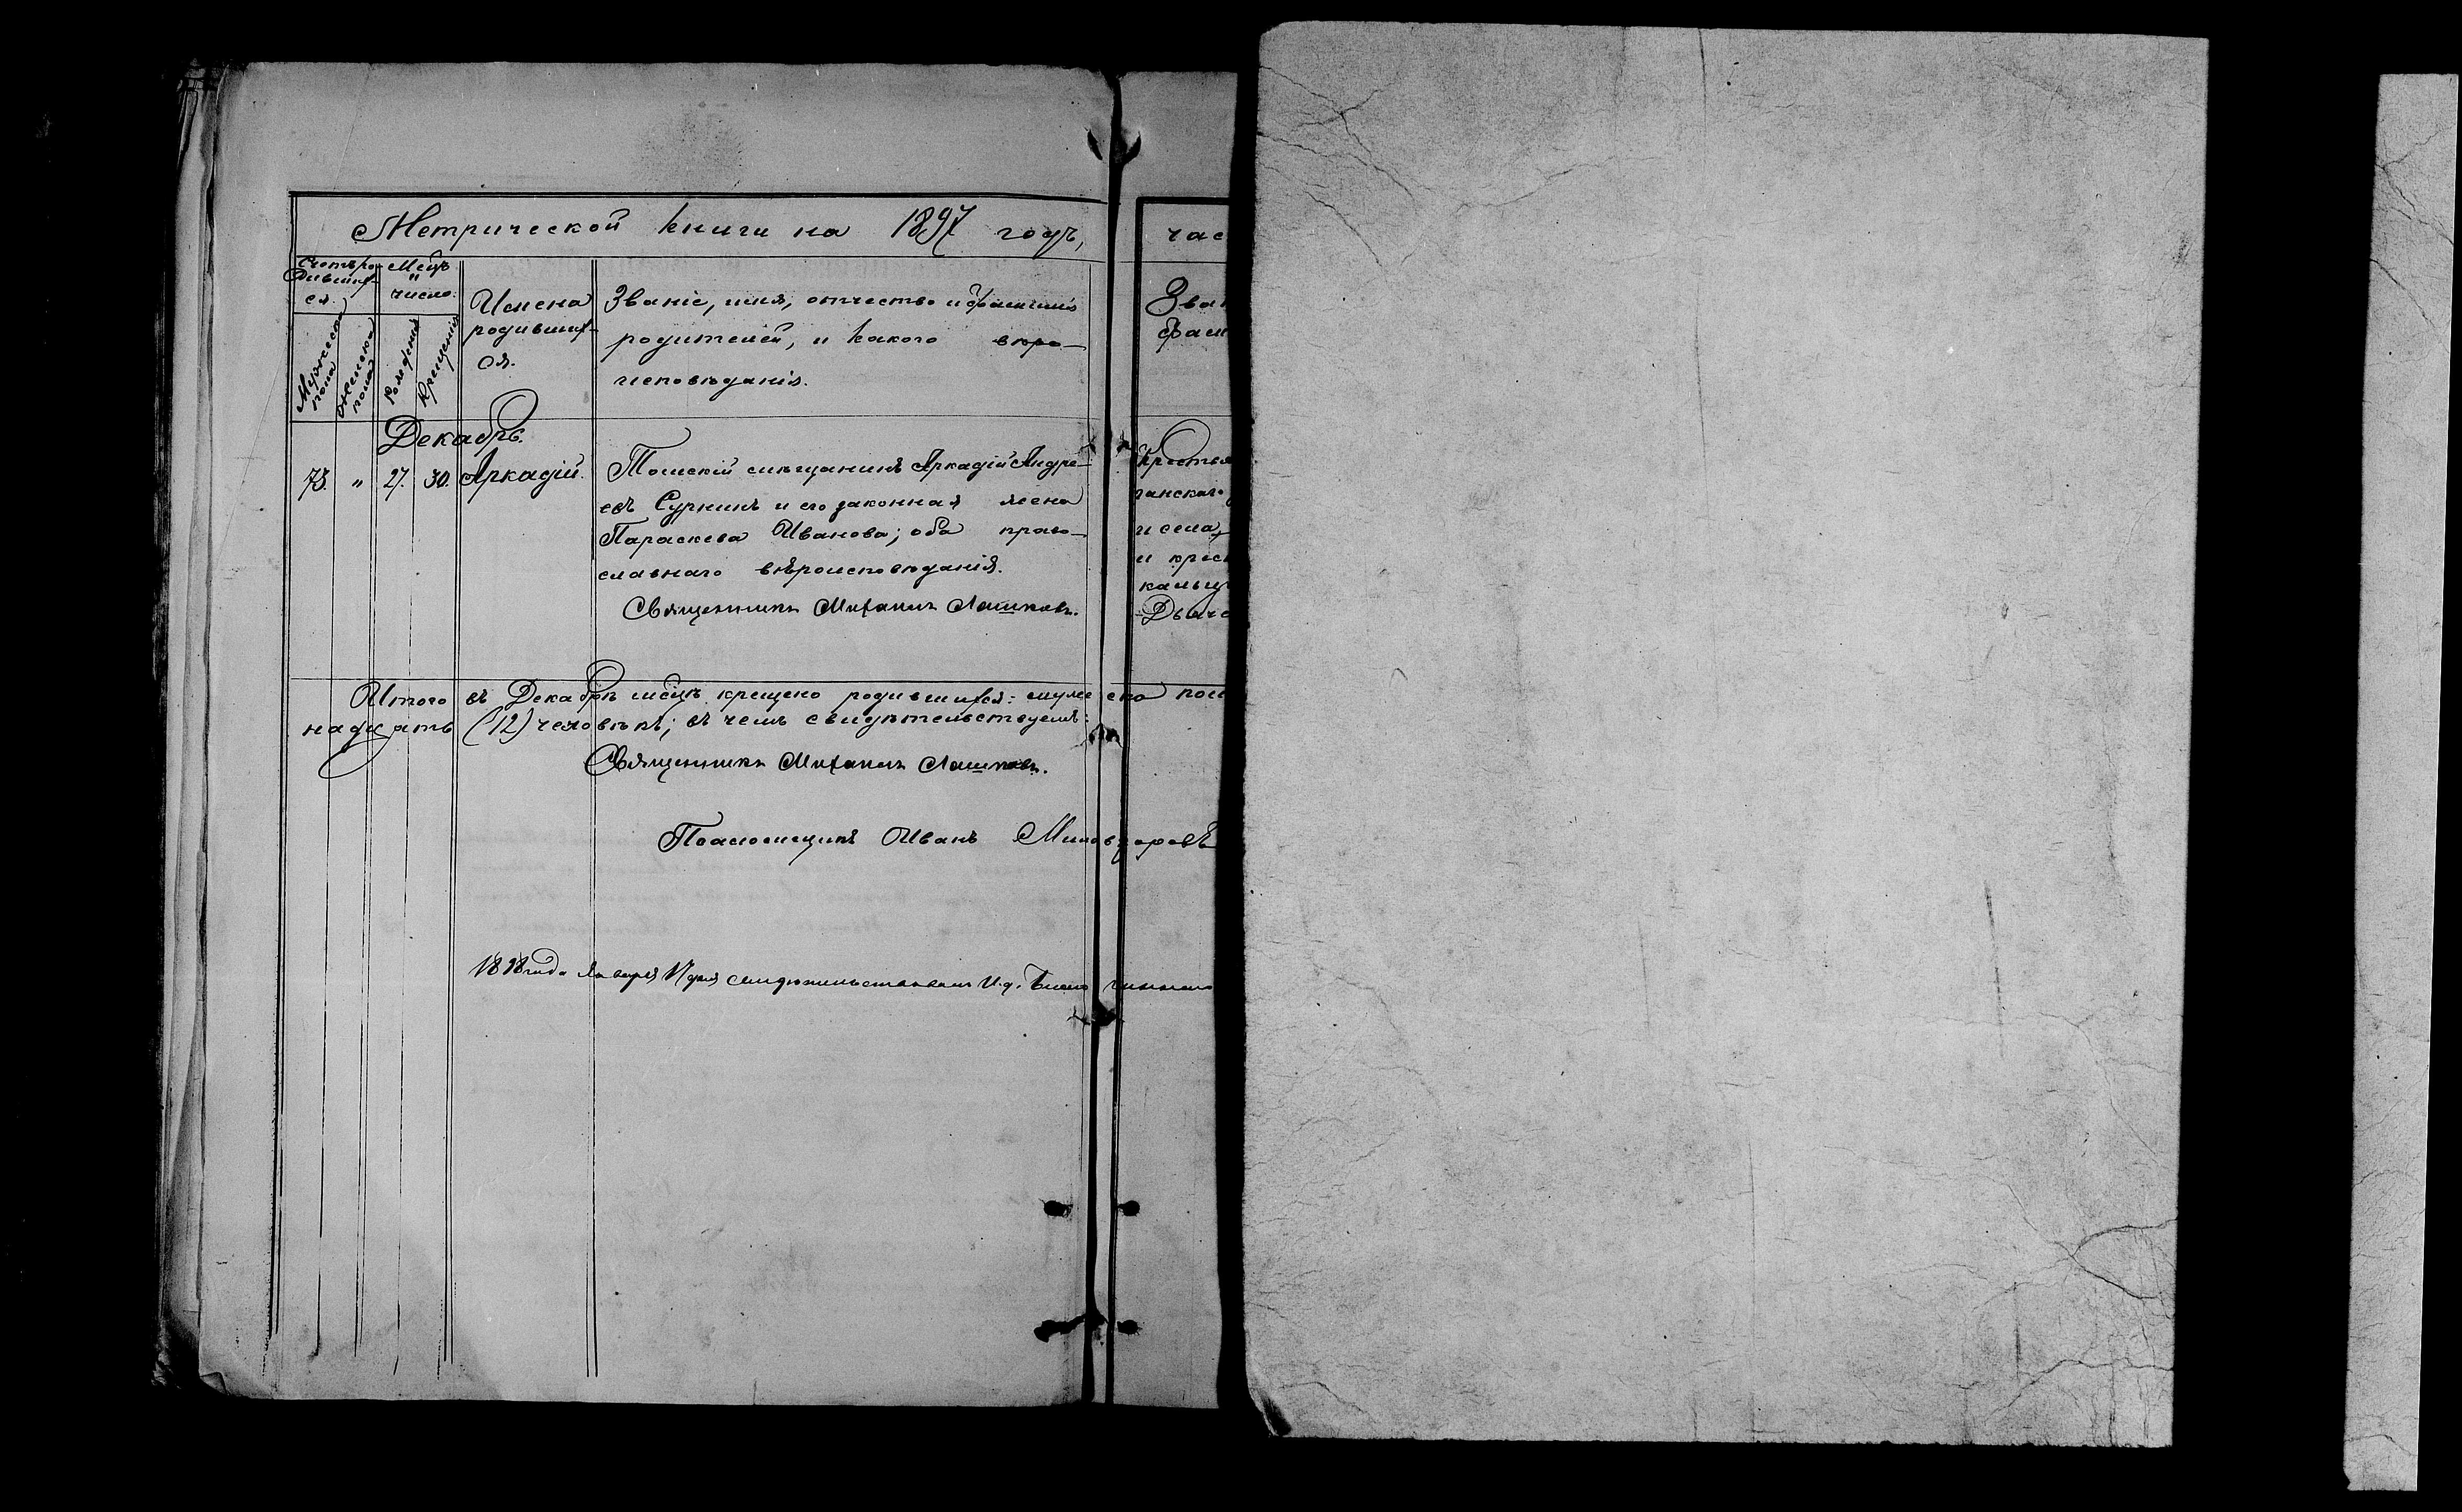 Метрической книги на 1897 годъ,
час
Счетъ ро-
дивших-
ся.
Мѣсцъ
и
число.
Мужеска
пола
Женска
пола
Рожденія
Крещенія
Имена
родивших-
ся.
Званіе, имя, отчество и фамилія
родителей, и какого вѣро-
исповѣданія.
Зван
фами
Декабрь.
73. " 27. 30. Аркадій.
Томскій мѣщанинъ Аркадій Андре-
евъ Суркинъ и его законная жена
Параскева Иванова; оба право-
славнаго вѣроисповѣданія.
Священникъ Михаилъ Лашковъ.
Крестья
ганскаго
и села
и крес
Итого въ Декабрѣ мѣсцѣ крещено родившихся: мужеска пол
надцать (12) человѣкъ; въ чемъ свидѣтельствуемъ:
Священникъ Михаилъ Лашковъ.
Псаломщикъ Иванъ Миловзоровъ
1898 года Января 17 дня свидѣтельствовалъ И. д. Благочиннаго